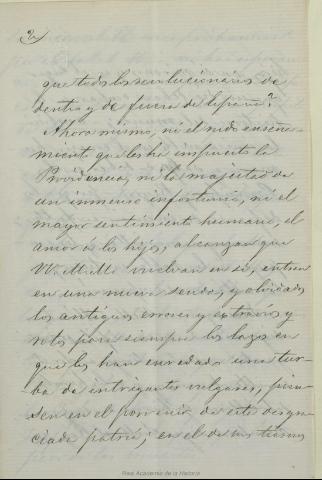 2ª
que todos los revolucionarios de
dentro y de fuera de España?
Ahora mismo, ni el rudo enseña-
miento que les ha impuesto la
Providencia, ni la majestad de
un inmenso infortunio, ni el
mayor sentimiento humano, el
amor a los hijos, alcanzan que
VV. MM. vuelvan en sí, entren
en una nueva senda, y olvidados
los antiguos errores y extravíos y
rotos para siempre los lazos en
que les han enredado una tur-
ba de intrigantes vulgares, pien-
sen en el porvenir de esta desgra-
ciada patria, en el de sus tiernos
Real Academia de la Historia